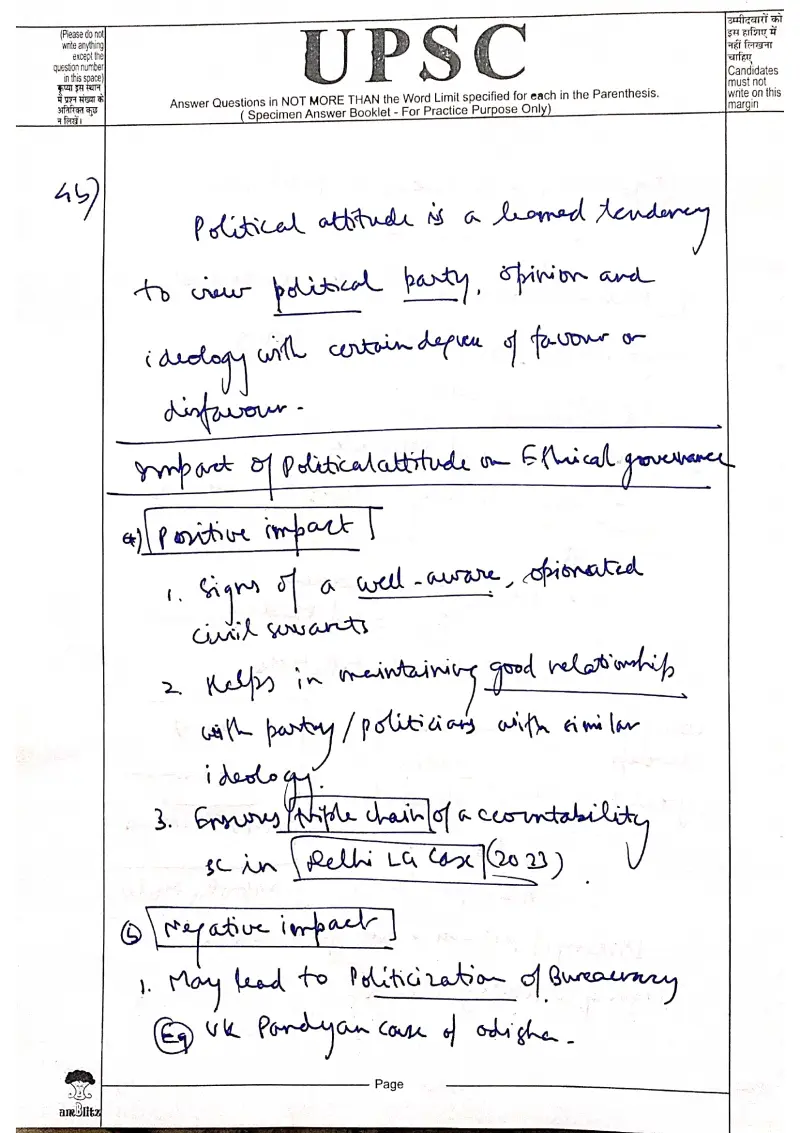 (Please do not
write anything
except the
question number
in this space)
कृप्या इस स्थान
में प्रश्न संख्या के
अतिरिक्त कुछ
न लिखें।
UPSC
Answer Questions in NOT MORE THAN the Word Limit specified for each in the Parenthesis.
( Specimen Answer Booklet - For Practice Purpose Only)
उम्मीदवारों को
इस हाशिए में
नहीं लिखना
चाहिए
Candidates
must not
write on this
margin
4b)
Political attitude is a learned tendency
to view political party, opinion and
ideology with certain degree of favour or
disfavour.
Impact of Political attitude on Ethical governance
a) Positive impact
1. Signs of a well-aware, opionated
civil servants
2. Helps in maintaining good relationship
with party/politicians with similar
ideology.
3. Ensures triple chain of accountability
SC in Delhi LG Case (2023).
b) Negative impact
1. May lead to Politicization of Bureaucracy
Eg VK Pandyan case of odisha.
Page
amBlitz